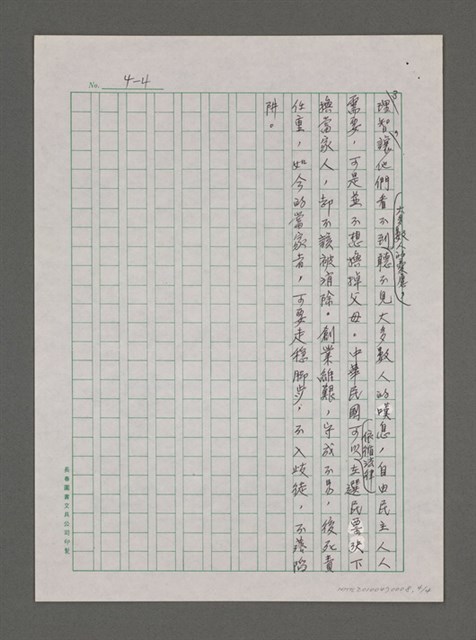 No. 4-4
理智讓他們看不到聽不見大多數人的嘆息,自由民主人人
大多數人的
需要,可是並不想換掉父母。中華民國可以在選民票決下
依循法律
換當家人,卻不該被消除。創業維艱,守成不易,後死責
任重,如今的當家者,可要走穩腳步,不入歧徒,不落陷
阱。
長春圖書文具公司印製